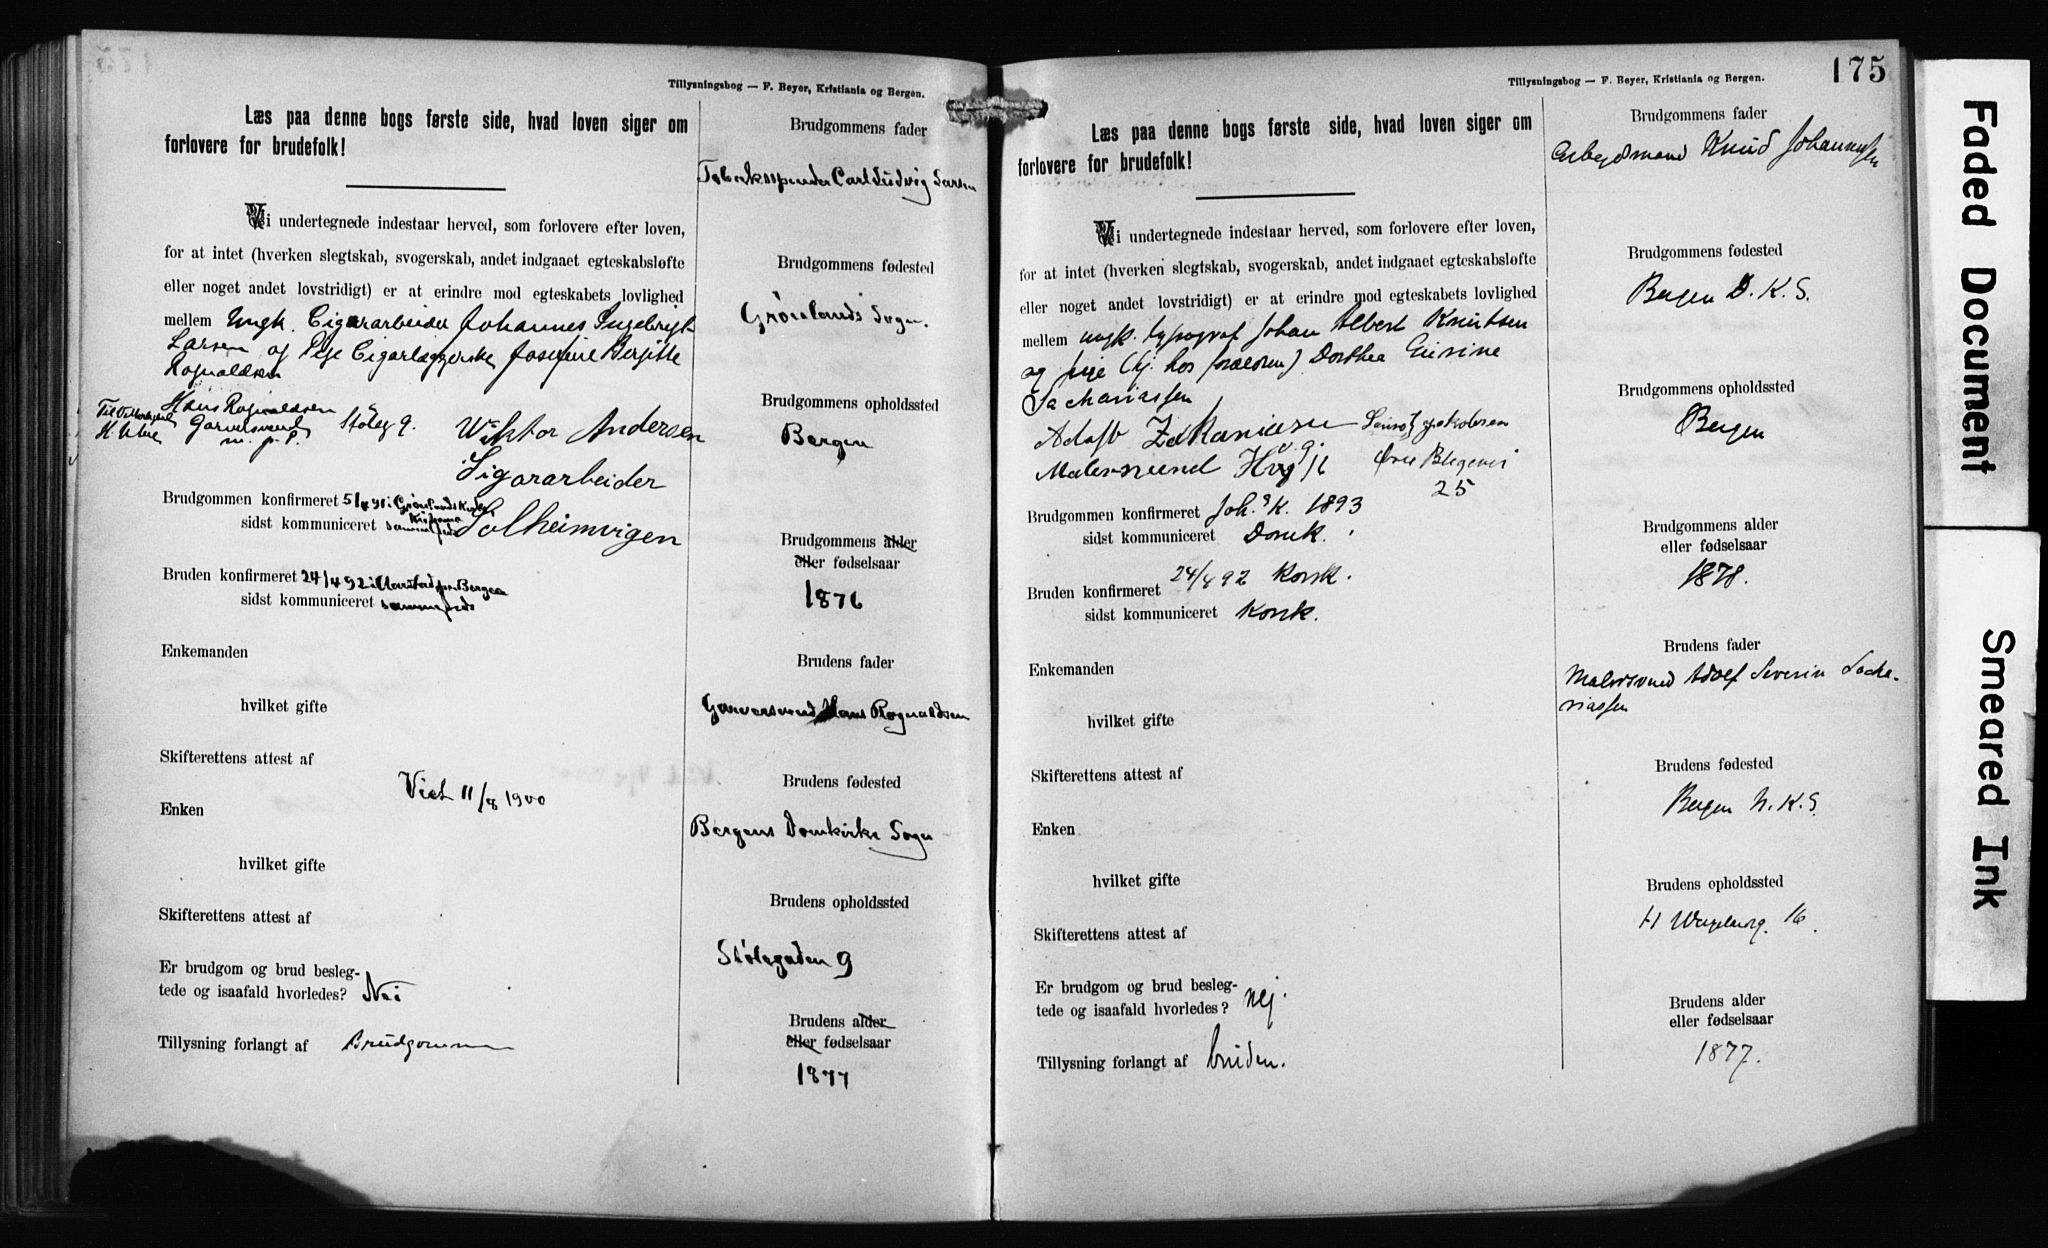 Tillysningsbog — F. Beyer, Kristiania og Bergen.
Læs paa denne bogs første side, hvad loven siger om
forlovere for brudefolk!
Vi undertegnede indestaar herved, som forlovere efter loven,
for at intet (hverken slegtskab, svogerskab, andet indgaaet egteskabsløfte
eller noget andet lovstridigt) er at erindre mod egteskabets lovlighed
mellem Ungk. Cigararbeider Johannes Ingebrigt
Larsen og Pige Cigarlæggerske Josefine Bergitte
Rognaldsen
Hans Rognaldsen
Garversvend
m. p. P.
Støleg 9.
Til Vitterlighed
Wiktor Andersen
Sigararbeider
Solheimvigen
Brudgommen konfirmeret 5/4 91 i Grønlands Kirke
Kristiania
sidst kommuniceret sammesteds
Bruden konfirmeret 24/4 92 i Aarstad pr. Bergen
sidst kommuniceret sammesteds
Enkemanden
hvilket gifte
Skifterettens attest af
Viet 11/8 1900
Enken
hvilket gifte
Skifterettens attest af
Er brudgom og brud besleg-
tede og isaafald hvorledes? Nei
Tillysning forlangt af Brudgommen
Brudgommens fader
Tobakspinder Carl Ludvig Larsen
Brudgommens fødested
Grønlands Sogn.
Brudgommens opholdssted
Bergen
Brudgommens alder
eller fødselsaar
1876
Brudens fader
Garversvend Hans Rognaldsen
Brudens fødested
Bergens Domkirke Sogn
Brudens opholdssted
Stølegaden 9
Brudens alder
eller fødselsaar
1877
Tillysningsbog — F. Beyer, Kristiania og Bergen.
175
Læs paa denne bogs første side, hvad loven siger om
forlovere for brudefolk!
Vi undertegnede indestaar herved, som forlovere efter loven,
for at intet (hverken slegtskab, svogerskab, andet indgaaet egteskabsløfte
eller noget andet lovstridigt) er at erindre mod egteskabets lovlighed
mellem ungk. typograf Johan Albert Knutsen
og pige (hj. hos forældren) Dorthea
Sachariassen
Adolf Zakariasen
Malersvend
25
Brudgommen konfirmeret Joh. K. 1893
sidst kommuniceret Domk.
Bruden konfirmeret 24/4 92 Korsk.
sidst kommuniceret Korsk.
Enkemanden
hvilket gifte
Skifterettens attest af
Enken
hvilket gifte
Skifterettens attest af
Er brudgom og brud besleg-
tede og isaafald hvorledes? nej.
Tillysning forlangt af bruden.
Brudgommens fader
Arbejdsmand Knud Johannessen
Brudgommens fødested
Bergen D. K. S.
Brudgommens opholdssted
Bergen
Brudgommens alder
eller fødselsaar
1878.
Brudens fader
Malersvend Adolf Severin Sacha-
riassen
Brudens fødested
Bergen N. K. S.
Brudens opholdssted
H 16.
Brudens alder
eller fødselsaar
1877.
Faded Document
Smeared Ink